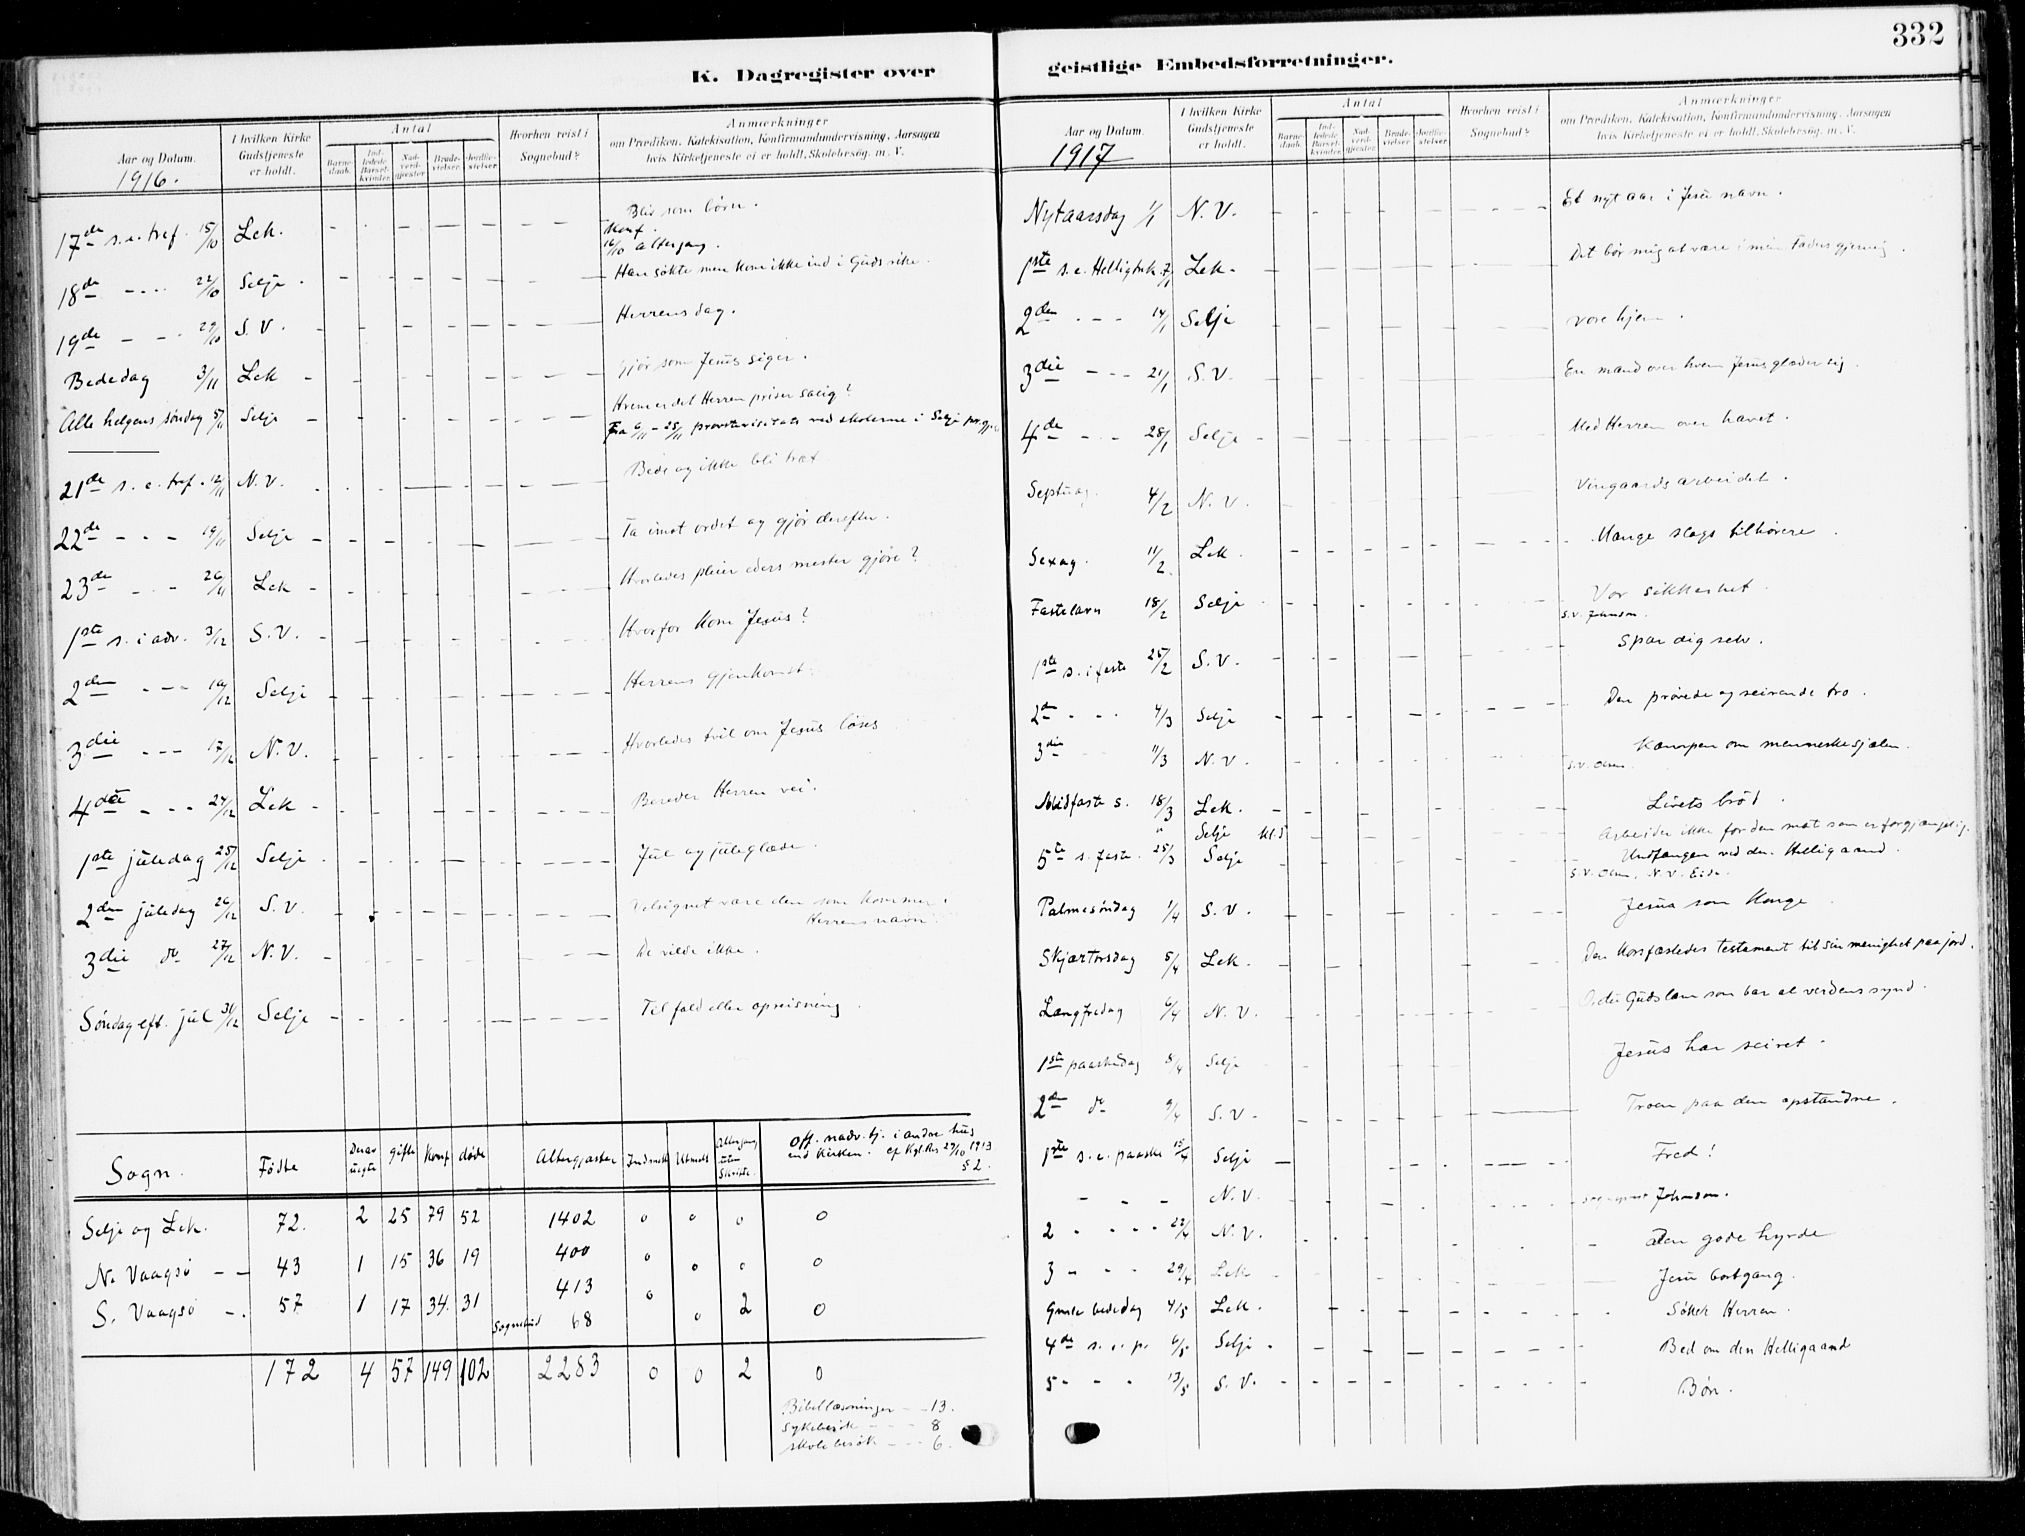 332
K. Dagregister over
Aar og Datum.
1916.
I hvilken Kirke Gudstjeneste er holdt.
Antal
Barnedaab.
Indledede Barselkvinder
Nadverdgjester
Brudevielser
Jordfæstelser
Hvorhen reist i Sognebud?
Anmærkninger
om Prædiken, Katekisation, Konfirmandundervisning, Aarsagen
hvis Kirketjeneste ei er holdt, Skolebesøg, m. V.
17de s. e. tref. 15/10 Lek. Bliv som børn.
Konf.
16/10 altergang.
18de - - - 22/10 Selje. Han søkte men kom ikke ind i Guds rike.
19de - - - 29/10 S. V. Herrens dag.
Bededag 3/11 Lek Gjør som Jesus siger.
Alle helgens søndag 5/11 Selje Hvem er det Herren priser salig?
Fra 6/11 - 25/11 provstevisitats ved skolerne i Selje prgj.
21de s. e. tref. 12/11 N. V. Bede og ikke bli træt
22de - - - 19/11 Selje Ta imot ordet og gjør derefter.
23de - - - 26/11 Lek Hvorledes pleier eders mester gjøre?
1ste s. i adv. 3/12 S. V. Hvorfor kom Jesus?
2den - - - 10/12 Selje Herrens gjenkomst.
3die - - - 17/12 N. V. Hvorledes tvil om Jesus løses
4de - - - 24/12 Lek Bereder Herren vei.
1ste juledag 25/12 Selje Jul og juleglæde.
2den juledag 26/12 S. V. Velsignet være den som kommer i
Herrens navn
3die do 27/12 N. V. De vilde ikke.
Søndag eft. jul 31/12 Selje Til fald eller opreisning.
Sogn. Fødte Derav uegte gifte Konf døde Altergjæster Indmeldt Utmeldt Altergang uten Skrifte. Off. nadv. tj. i andre hus
end kirken. cf Kgl. Res 29/10 1913
§ 2.
Selje og Lek. 72. 2 25 79 52 1402 0 0 0 0
N. Vaagsø - - 43 1 15 36 19 400 0 0 0 0
S. Vaagsø - . 57 1 17 34. 31 413 0 0 2 0
Sognebud 68
172 4 57 149 102 2283 0 0 2 0
Bibellæsninger - - 13.
Sykebesøk - - - 8
Skolebesøk - - - 6.
geistlige Embedsforretninger.
Aar og Datum.
1917
I hvilken Kirke Gudstjeneste er holdt.
Antal
Barnedaab.
Indledede Barselkvinder
Nadverdgjester
Brudevielser
Jordfæstelser
Hvorhen reist i Sognebud?
Anmærkninger
om Prædiken, Katekisation, Konfirmandundervisning, Aarsagen
hvis Kirketjeneste ei er holdt, Skolebesøg, m. V.
Nytaarsdag 1/1 N. V. Et nyt aar i Jesu navn.
1ste s. e. Helligtrek. 7/1 Lek. Det bør mig at være i min Faders gjerning.
2den . - - 14/1 Selje vore hjem.
3die - - - 21/1 S. V. En mand over hvem Jesus glæder sig.
4de - - - 28/1 Selje Med Herren over havet.
Septuag. 4/2 N. V. Vingaardsarbeidet.
Sexag. 11/2 Lek. Mange slags tilhørere.
Fastelavn 18/2 Selje Vor sikkerhet
S. V. Johnson.
1ste s. i faste 25/2 S. V. Spar dig selv.
2den - - - 4/3 Selje Den prøvede og seirende tro.
3die - - 11/3 N. V. Kampen om menneskesjælen.
S. V. Olsen.
Midfaste s. 18/3 Lek. Livets brød.
" Selje kl. 5 Arbeider ikke for den mat som er forgjængelig.
5te s. faste. 25/3 Selje Undfangen ved den Helligaand.
S. V. Olsen. N. V. Eide.
Palmesøndag 1/4 S. V. Jesus som Konge
Skjærtorsdag 5/4 Lek. Den Korsfæstedes testament til sin menighet paa jord.
Langfredag 6/4 N. V. Guds lam som bar al verdens synd.
1ste paaskedag 8/4 Selje Jesus har seiret.
2den do 9/4 S. V. Troen paa den opstandne.
1ste s. e. paaske 15/4 Selje Fred!
- - - N. V. Johnson.
2 - - - 22/4 N. V. Den gode hyrde
3 - - - 29/4 Lek Jesu bortgang.
Gmle bededag 4/5 Lek. Søker Herren.
4de s. e. p. 6/5 Selje. Bed om den Helligaand
5 - - - 13/5 S. V. Bøn.